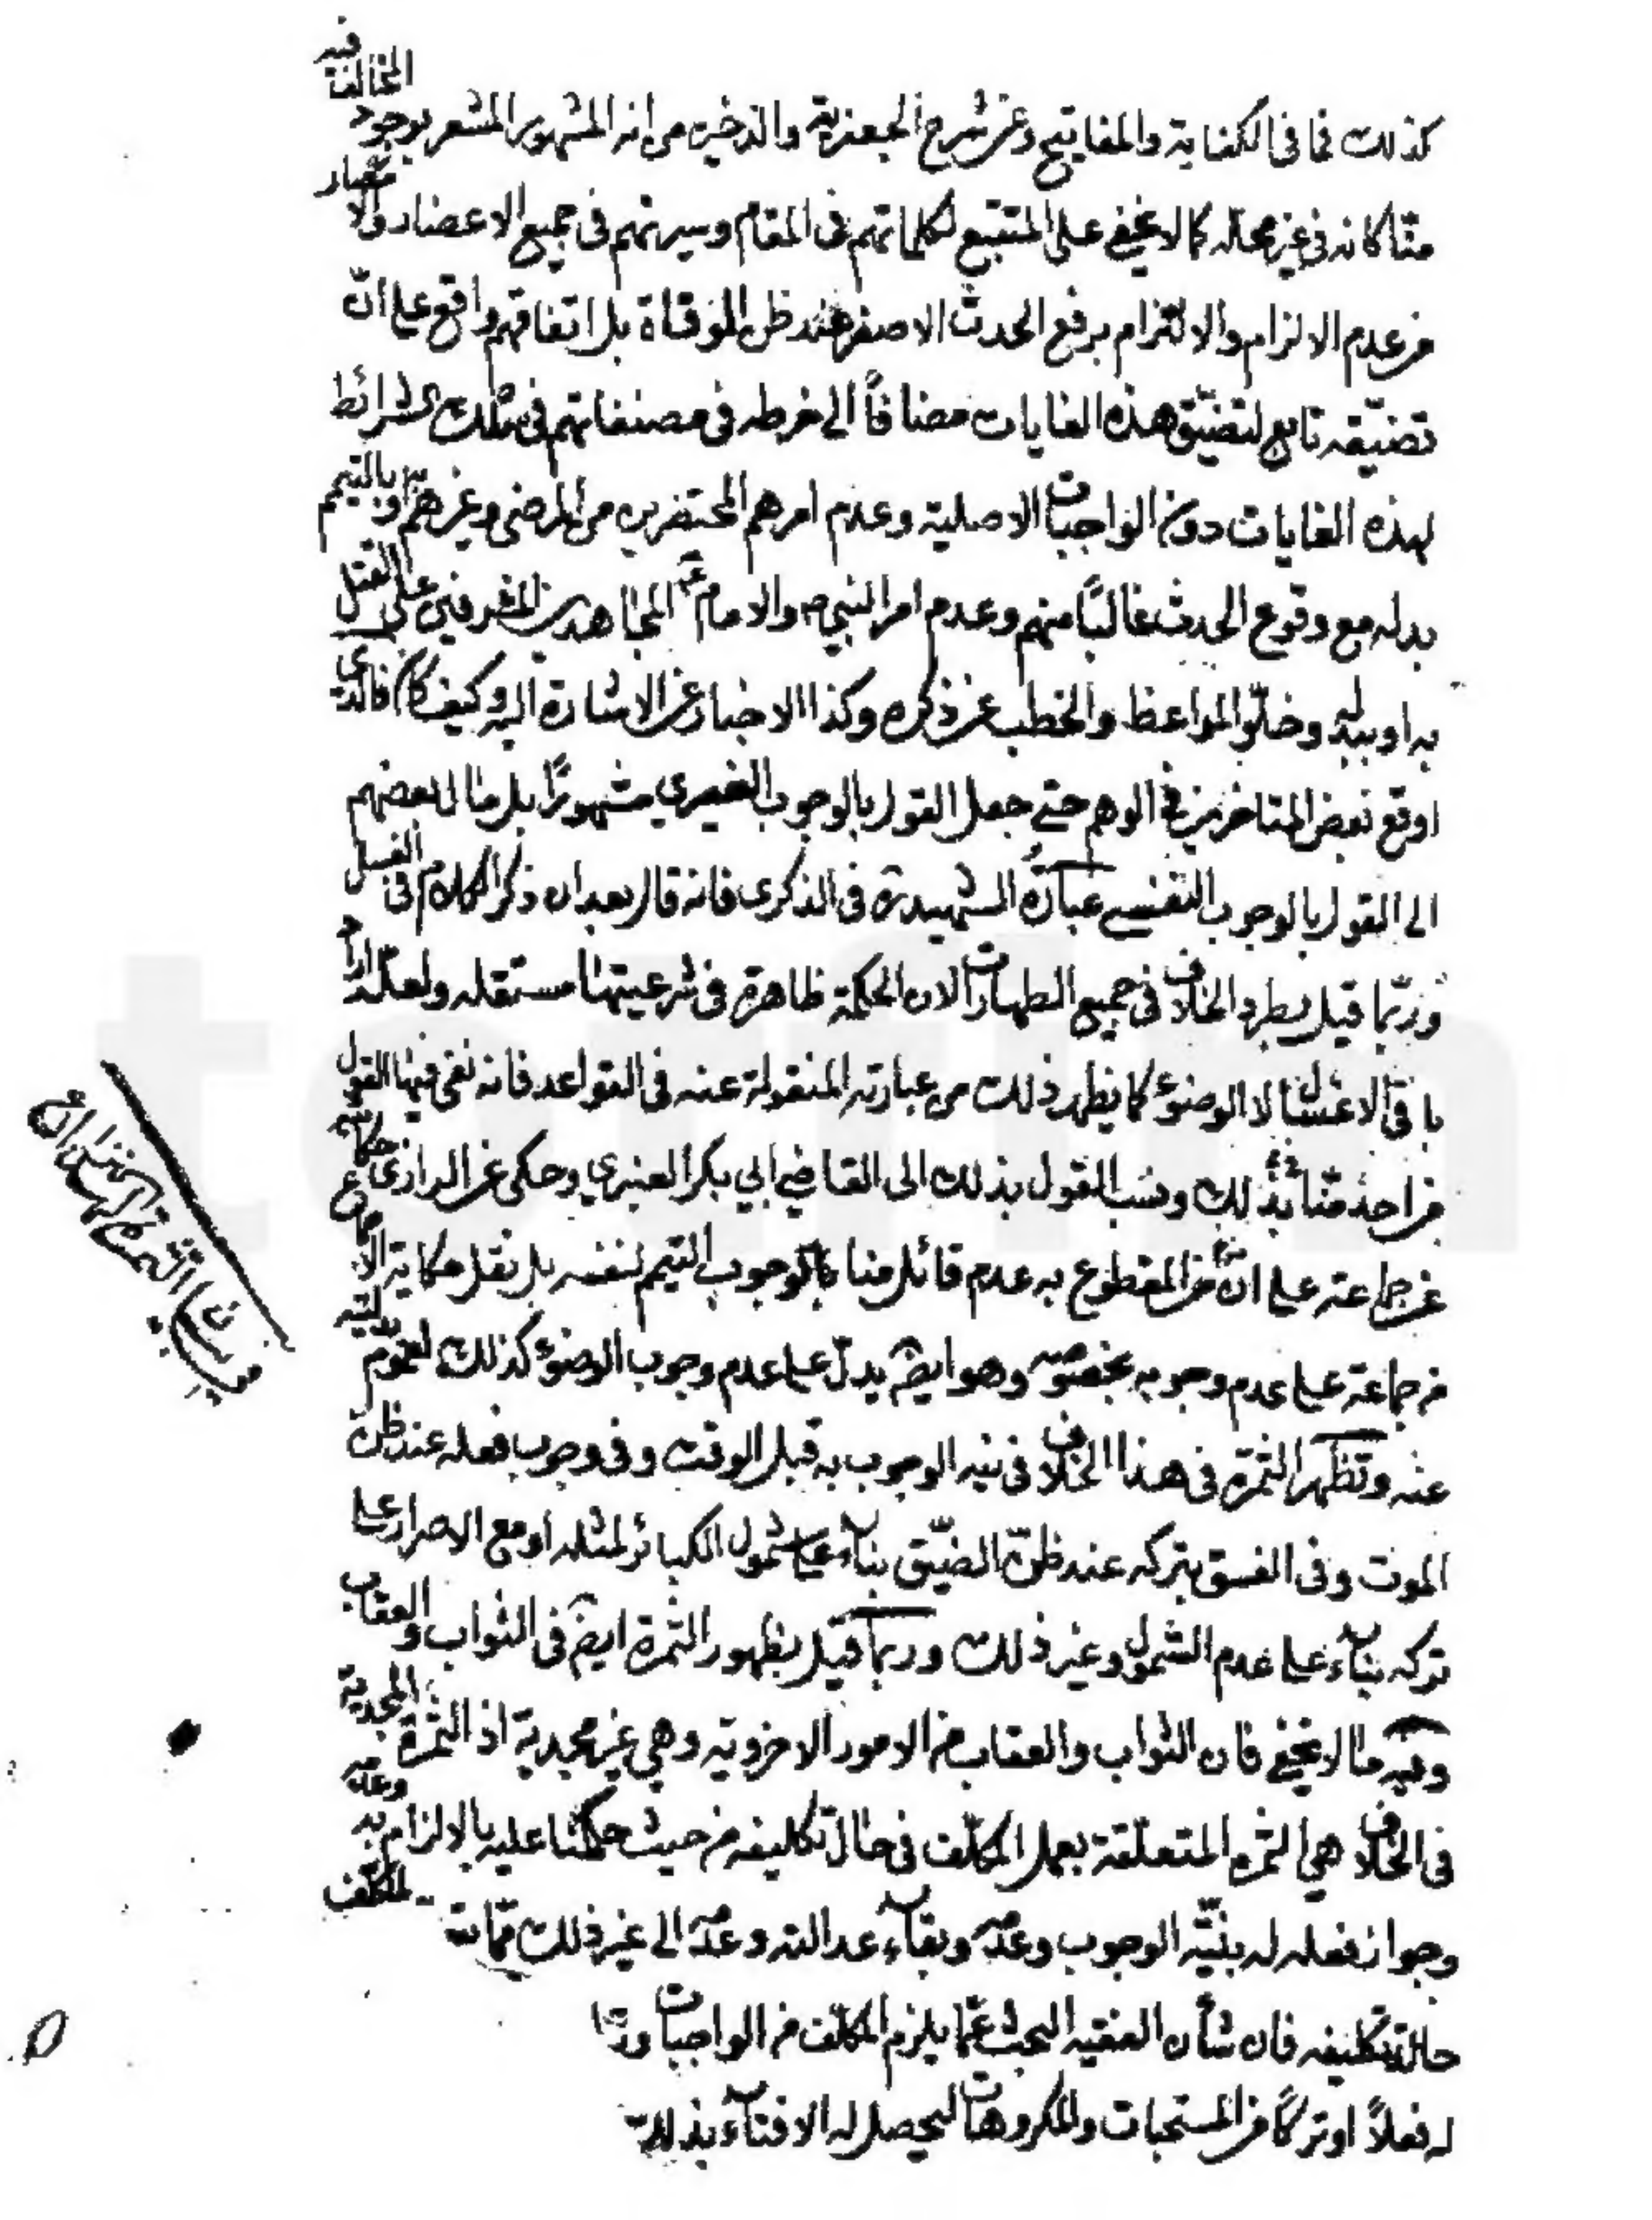 كذلك فما فى الكفاية والمفاتيح وعن شرح الجعفرية والذخيره من انه المشهور المشعر بوجود المخالف فيه
منّا كانه فى غير محله كما لا يخفى على المتتبع لكلماتهم فى المقام وسيرتهم فى جميع الاعصار والامصار
من عدم الالزام والالتزام برفع الحدث الاصغر عند ظن الوفاة بل اتفاقهم واقع على انّ
تضيّقه تابع لتضيّق هذه الغايات مضافاً الى فى مصنفاتهم فى سلك شرائط
لهذه الغايات دون الواجبات الاصلية وعدم امرهم المحتضرين من المرضى وغيرهم به او بالتيمم
بدله مع وقوع الحدث غالبًا منهم وعدم امر النبى ص والامام ع المجاهدين المشرفين على القتل
به او ببدله وخلّو المواعظ والخطب عن ذكره وكذا الاخبار عن الاشارة اليه وكيف كان فالذى
اوقع بعض المتاخرين فى الوهم حتى جعل القول بالوجوب الغيرى مشهورًا بل مال بعضهم
الى القول بالوجوب النفسى عبارة الشهيد ره فى الذكرى فانه قال بعد ان ذكر الكلام فى الغسل
وربّما قيل بطرد الخلاف فى جميع الطهارات لان الحكمة ظاهرة فى شرعيتها مستقله ولعله اراد
باقى الاغسال لا الوضوء كما يظهر ذلك من عبارته المنقولة عنه فى القواعد فانه نفى فيها القول
من احد منّا بذلك ونسب القول بذلك الى القاضى ابى بكر العنبرى وحكى عن الرازى حكايته
عن جماعته على انّه من المقطوع به عدم قائل منا بالوجوب التيمم لنفسه بل نقل حكاية الاجماع
من جماعة على عدم وجوبه بخصوصه وهو ايضا يدلّ على عدم وجوب الوضوء كذلك لعموم بدليته
عنه وتظهر الثمرة فى هذا الخلاف فى نيه الوجوب به قبل الوقت وفى وجوب فعله عند ظن
الموت وفى الفسق بتركه عند ظنّ الضيّق بناء على شمول الكبائر لمثله او مع الاصرار على
تركه بناء على عدم الشمول وغير ذلك وربما قيل بظهور الثمرة ايضا فى الثواب والعقاب
وفيه ما لا يخفى فان الثواب والعقاب من الامور الاخرويه وهى غير مجدية اذ الثمرة المجدية
فى الخلاف هى الثمره المتعلّقة بعمل المكلّف فى حال تكليفه من حيث حكمنا عليه بالالزام به وعدمه
وجواز فعله له بنيّه الوجوب وعدمه وبقاء عدالته وعدمه الى غير ذلك للمكلف
حال تكليفه فان شأن الفقيه البحث عمّا يلزم المكلّف من الواجبات
له فعلاً او تركاً من المستحبات والمكروهات ليحصل له الافتاء بذلك